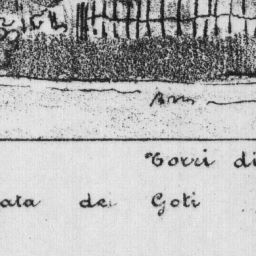 Torri di
ata de Goti